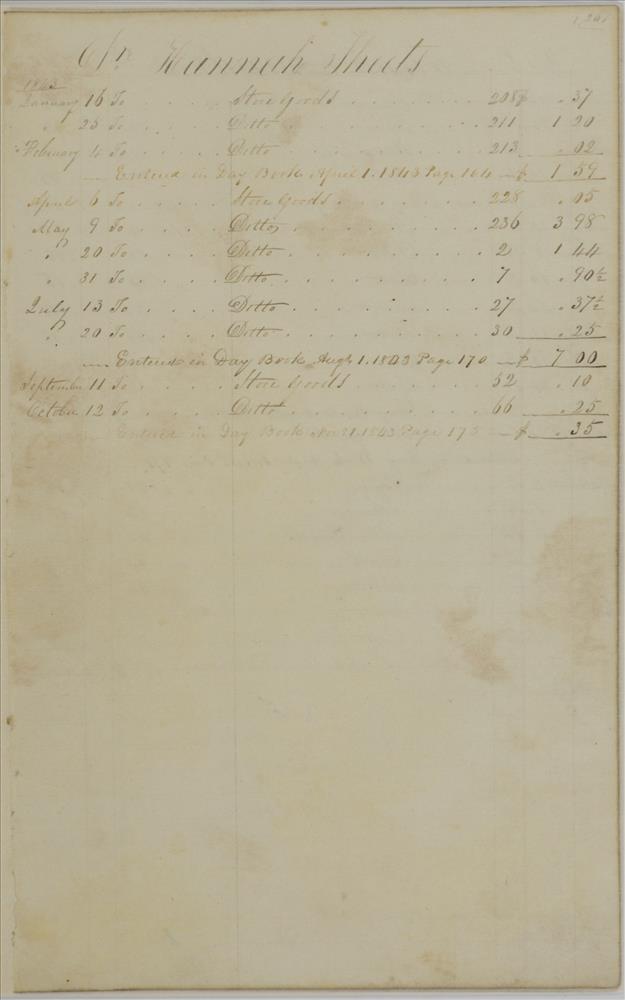 Hannah Sheets
1843
January 16 To . . . . Store Goods . . . . . . . 208 $ . 37
" 25 To . . . . . Ditto . . . . . . . . 211 1 20
February 4 To . . . . . Ditto . . . . . . . . 213 . 02
— Entered in Day Book April 1. 1843 Page 164 — $ 1 59
April 6 To . . . . . Store Goods . . . . . . . 228 . 05
May 9 To . . . . Ditto . . . . . . . . 236 3 98
" 20 To . . . . Ditto . . . . . . . . 2 1 44
" 31 To . . . . Ditto . . . . . . . . 7 . 90½
July 13 To . . . . Ditto . . . . . . . . 27 . 37½
" 20 To . . . . Ditto . . . . . . . . 30 . 25
— Entered in Day Book Augt 1. 1843 Page 170 — $ 7 00
September 11 To . . . . Store Goods . . . . . . . 52 . 10
October 12 To . . . . Ditto . . . . . . . . 66 . 25
— Entered in Day Book Nov 1. 1843 Page 175 — $ . 35